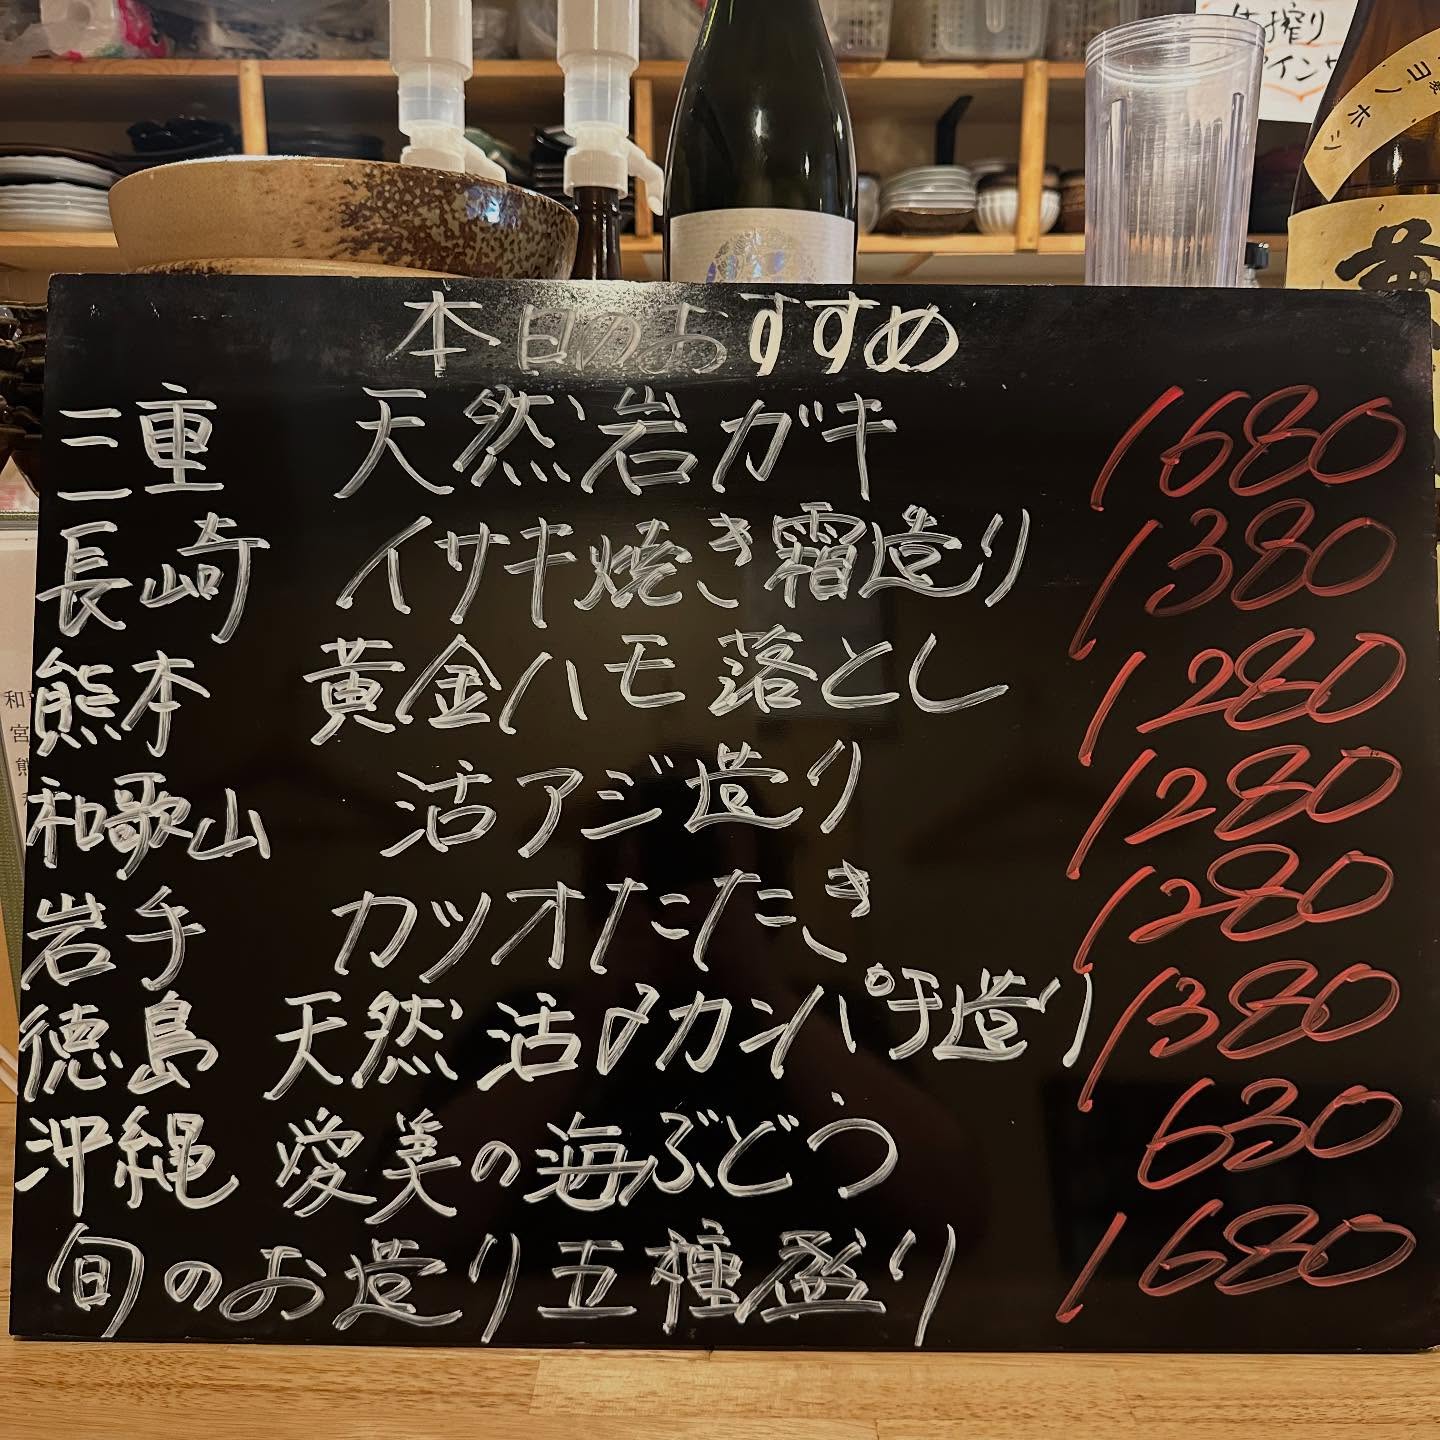 生搾り
ヨノホシ
本日のおすすめ
三重 天然岩ガキ 1680
長崎 イサキ焼き霜造り 1380
熊本 黄金ハモ落とし 1280
和歌山 活アジ造り 1280
岩手 カツオたたき 1280
徳島 天然活〆カンパチ造り 1380
沖縄 愛美の海ぶどう 630
旬のお造り五種盛り 1680
和
宮
熊